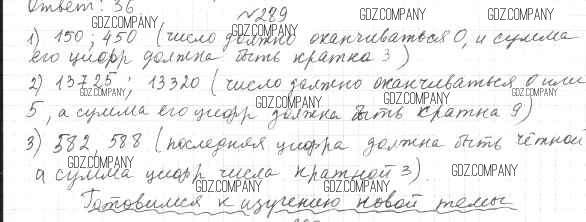 Ответ: 36
№289
1) 150; 450 (число должно оканчиваться 0, и сумма
его цифр должна быть кратна 3)
2) 13725; 13320 (число должно оканчиваться 0 или
5, а сумма его цифр должна быть кратна 9)
3) 582, 588 (последняя цифра должна быть чётной
а сумма цифр числа кратной 3).
Готовимся к изучению новой темы
GDZ.COMPANY
GDZ.COMPANY
GDZ.COMPANY
GDZ.COMPANY
GDZ.COMPANY
GDZ.COMPANY
GDZ.COMPANY
GDZ.COMPANY
GDZ.COMPANY
GDZ.COMPANY
GDZ.COMPANY
GDZ.COMPANY
GDZ.COMPANY
GDZ.COMPANY